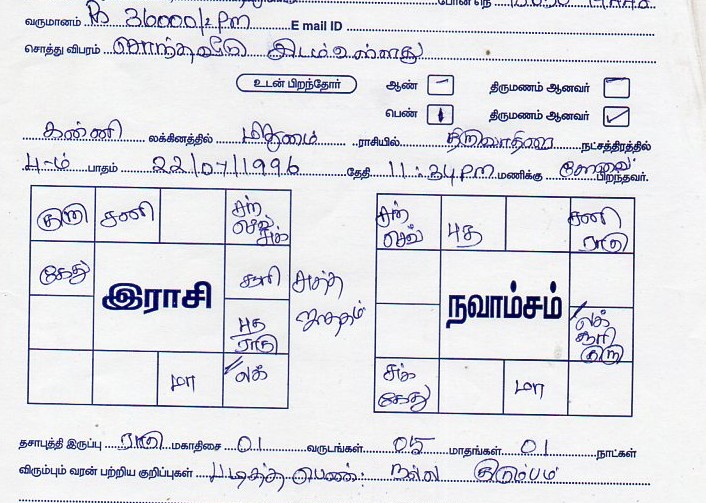 வருமானம் Rs 36000/- PM E mail ID
சொத்து விபரம் சொந்தவீடு இடம் உள்ளது
உடன் பிறந்தோர் ஆண் – திருமணம் ஆனவர் –
பெண் 1 திருமணம் ஆனவர் ✓
கன்னி லக்கினத்தில் ராசியில் நட்சத்திரத்தில்
4-ம் பாதம் 22/07/1996 தேதி 11:34 PM மணிக்கு கோவை பிறந்தவர்.
குரு சனி சந் செவ் சுக்
கேது இராசி சூரி
புத ராகு
மா லக்
சந் செவ் புத சனி ராகு
நவாம்சம் லக் சூரி குரு
சுக் கேது மா
தசாபுத்தி இருப்பு ராகு மகாதிசை 01 வருடங்கள் 05 மாதங்கள் 01 நாட்கள்
விரும்பும் வரன் பற்றிய குறிப்புகள் படித்த பெண். நல்ல குடும்பம்